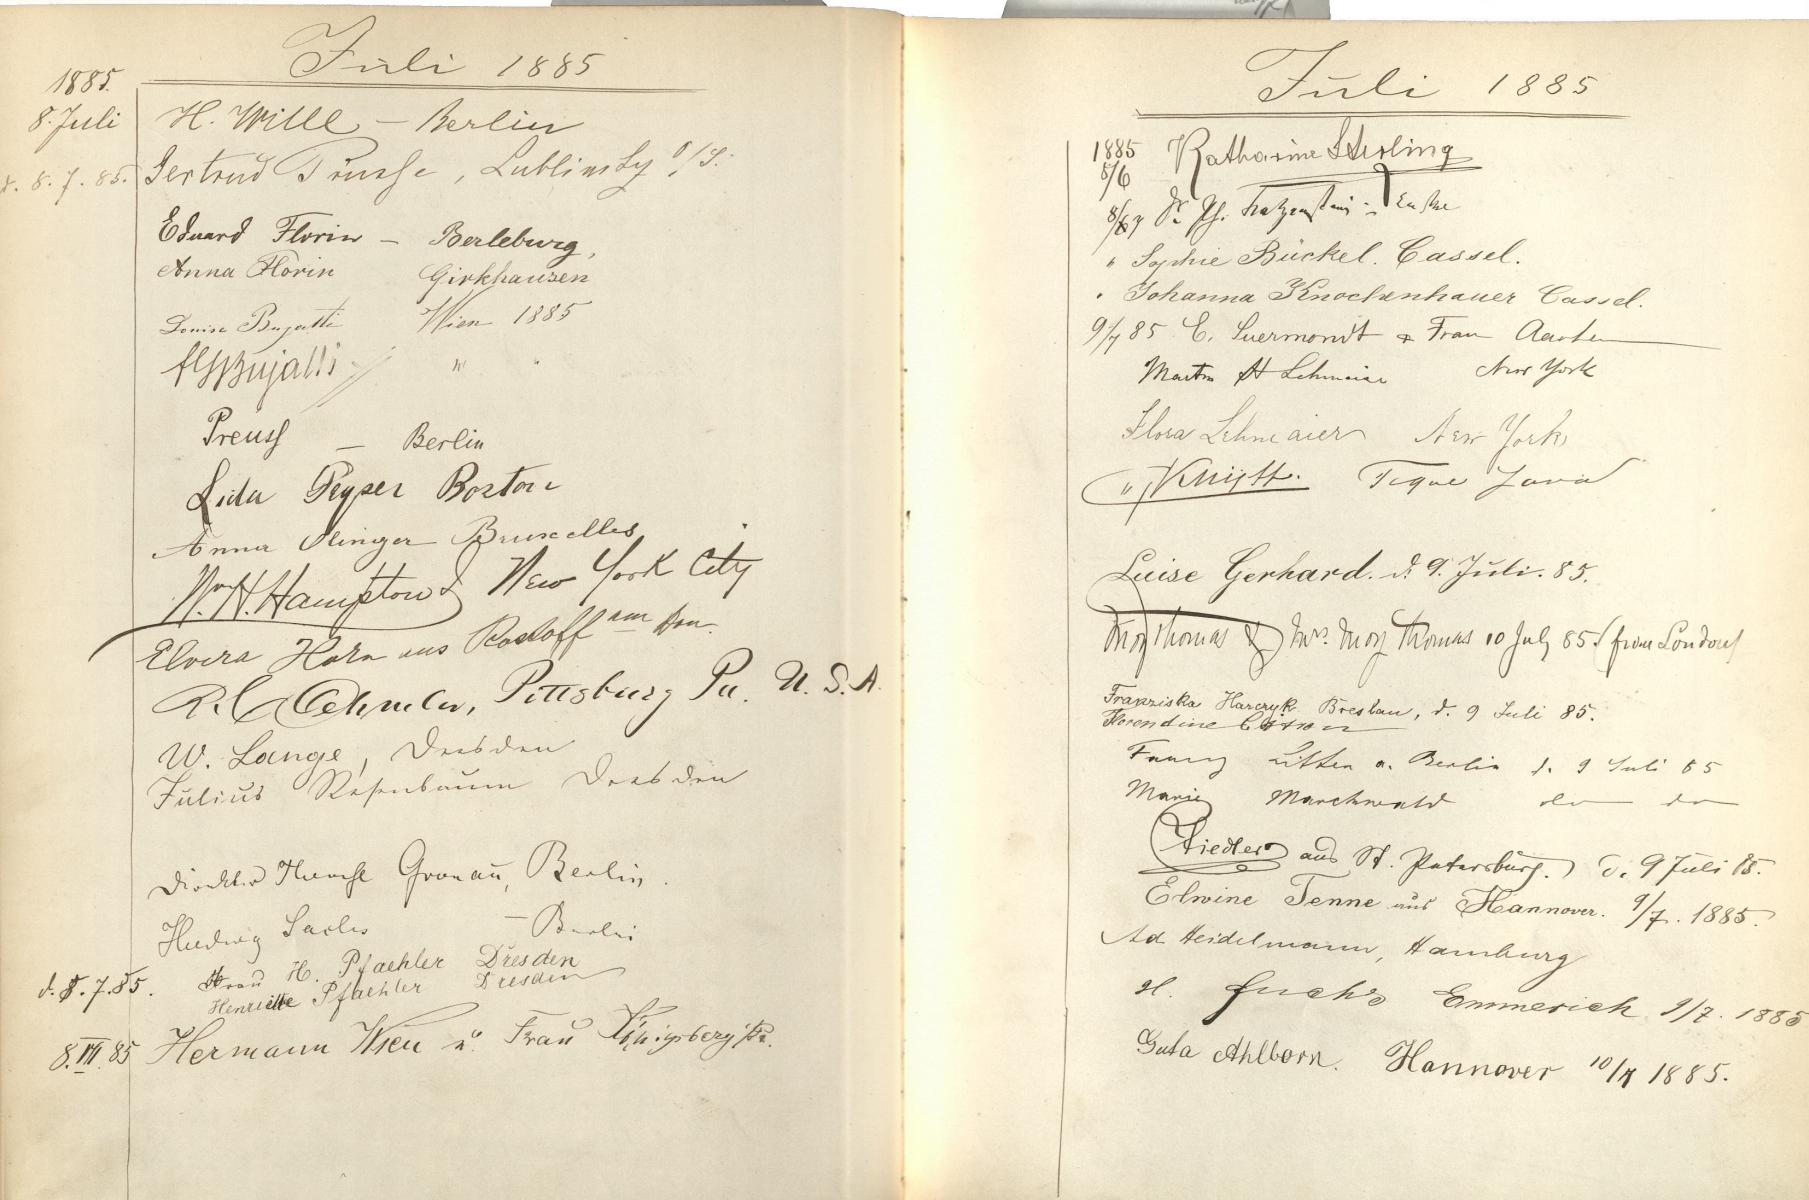 Juli 1885
1885.
8. Juli H. Wille – Berlin
d. 8. 7. 85. Gertrud Prusse, Lublinitz o/S.
Eduard Florin – Berleburg,
Anna Florin Girkhausen
Louise Bujatti Wien 1885
Bujatti " "
Preuss – Berlin
Lida Peyser Boston
Anna Bruxelles
Wm. H. Hampton New York City
Elvera Horn aus Rostoff am Don.
R. C. Pittsburg Pa. U. S. A.
W. Lange, Dresden
Julius Rosenbaum Dresden
Direktor Gronau, Berlin.
Hedwig Sachs – Berlin
d. 8. 7. 85. Frau H. Pfaehler Dresden
Henriette Pfaehler Dresden
8. VII. 85 Hermann Wien u. Frau Königsberg i/Pr.
Juli 1885
1885 Katharine Sterling
8/6
8/7 Dr. Ph.
" Sophie Bückel. Cassel.
" Johanna Knochenhauer Cassel.
9/7 85 C. Suermondt & Frau Aachen
Martin H Lehmaier New York
Flora Lehmaier New York
" Java
Luise Gerhard. d. 9. Juli. 85.
Moy Thomas & Mrs. Moy Thomas 10 July 85 (from London)
Franziska Harczyk Breslau, d. 9 Juli 85.
Florendine
Fanny Litten a. Berlin d. 9 Juli 85
Marie Marckwald do do
Fiedler aus St. Petersburg. d. 9 Juli 85.
Elwine Tenne aus Hannover. 9/7. 1885.
Ad Heidelmann, Hamburg
H. Fuchs Emmerich 9/7. 1885
Guta Ahlborn. Hannover 10/7 1885.